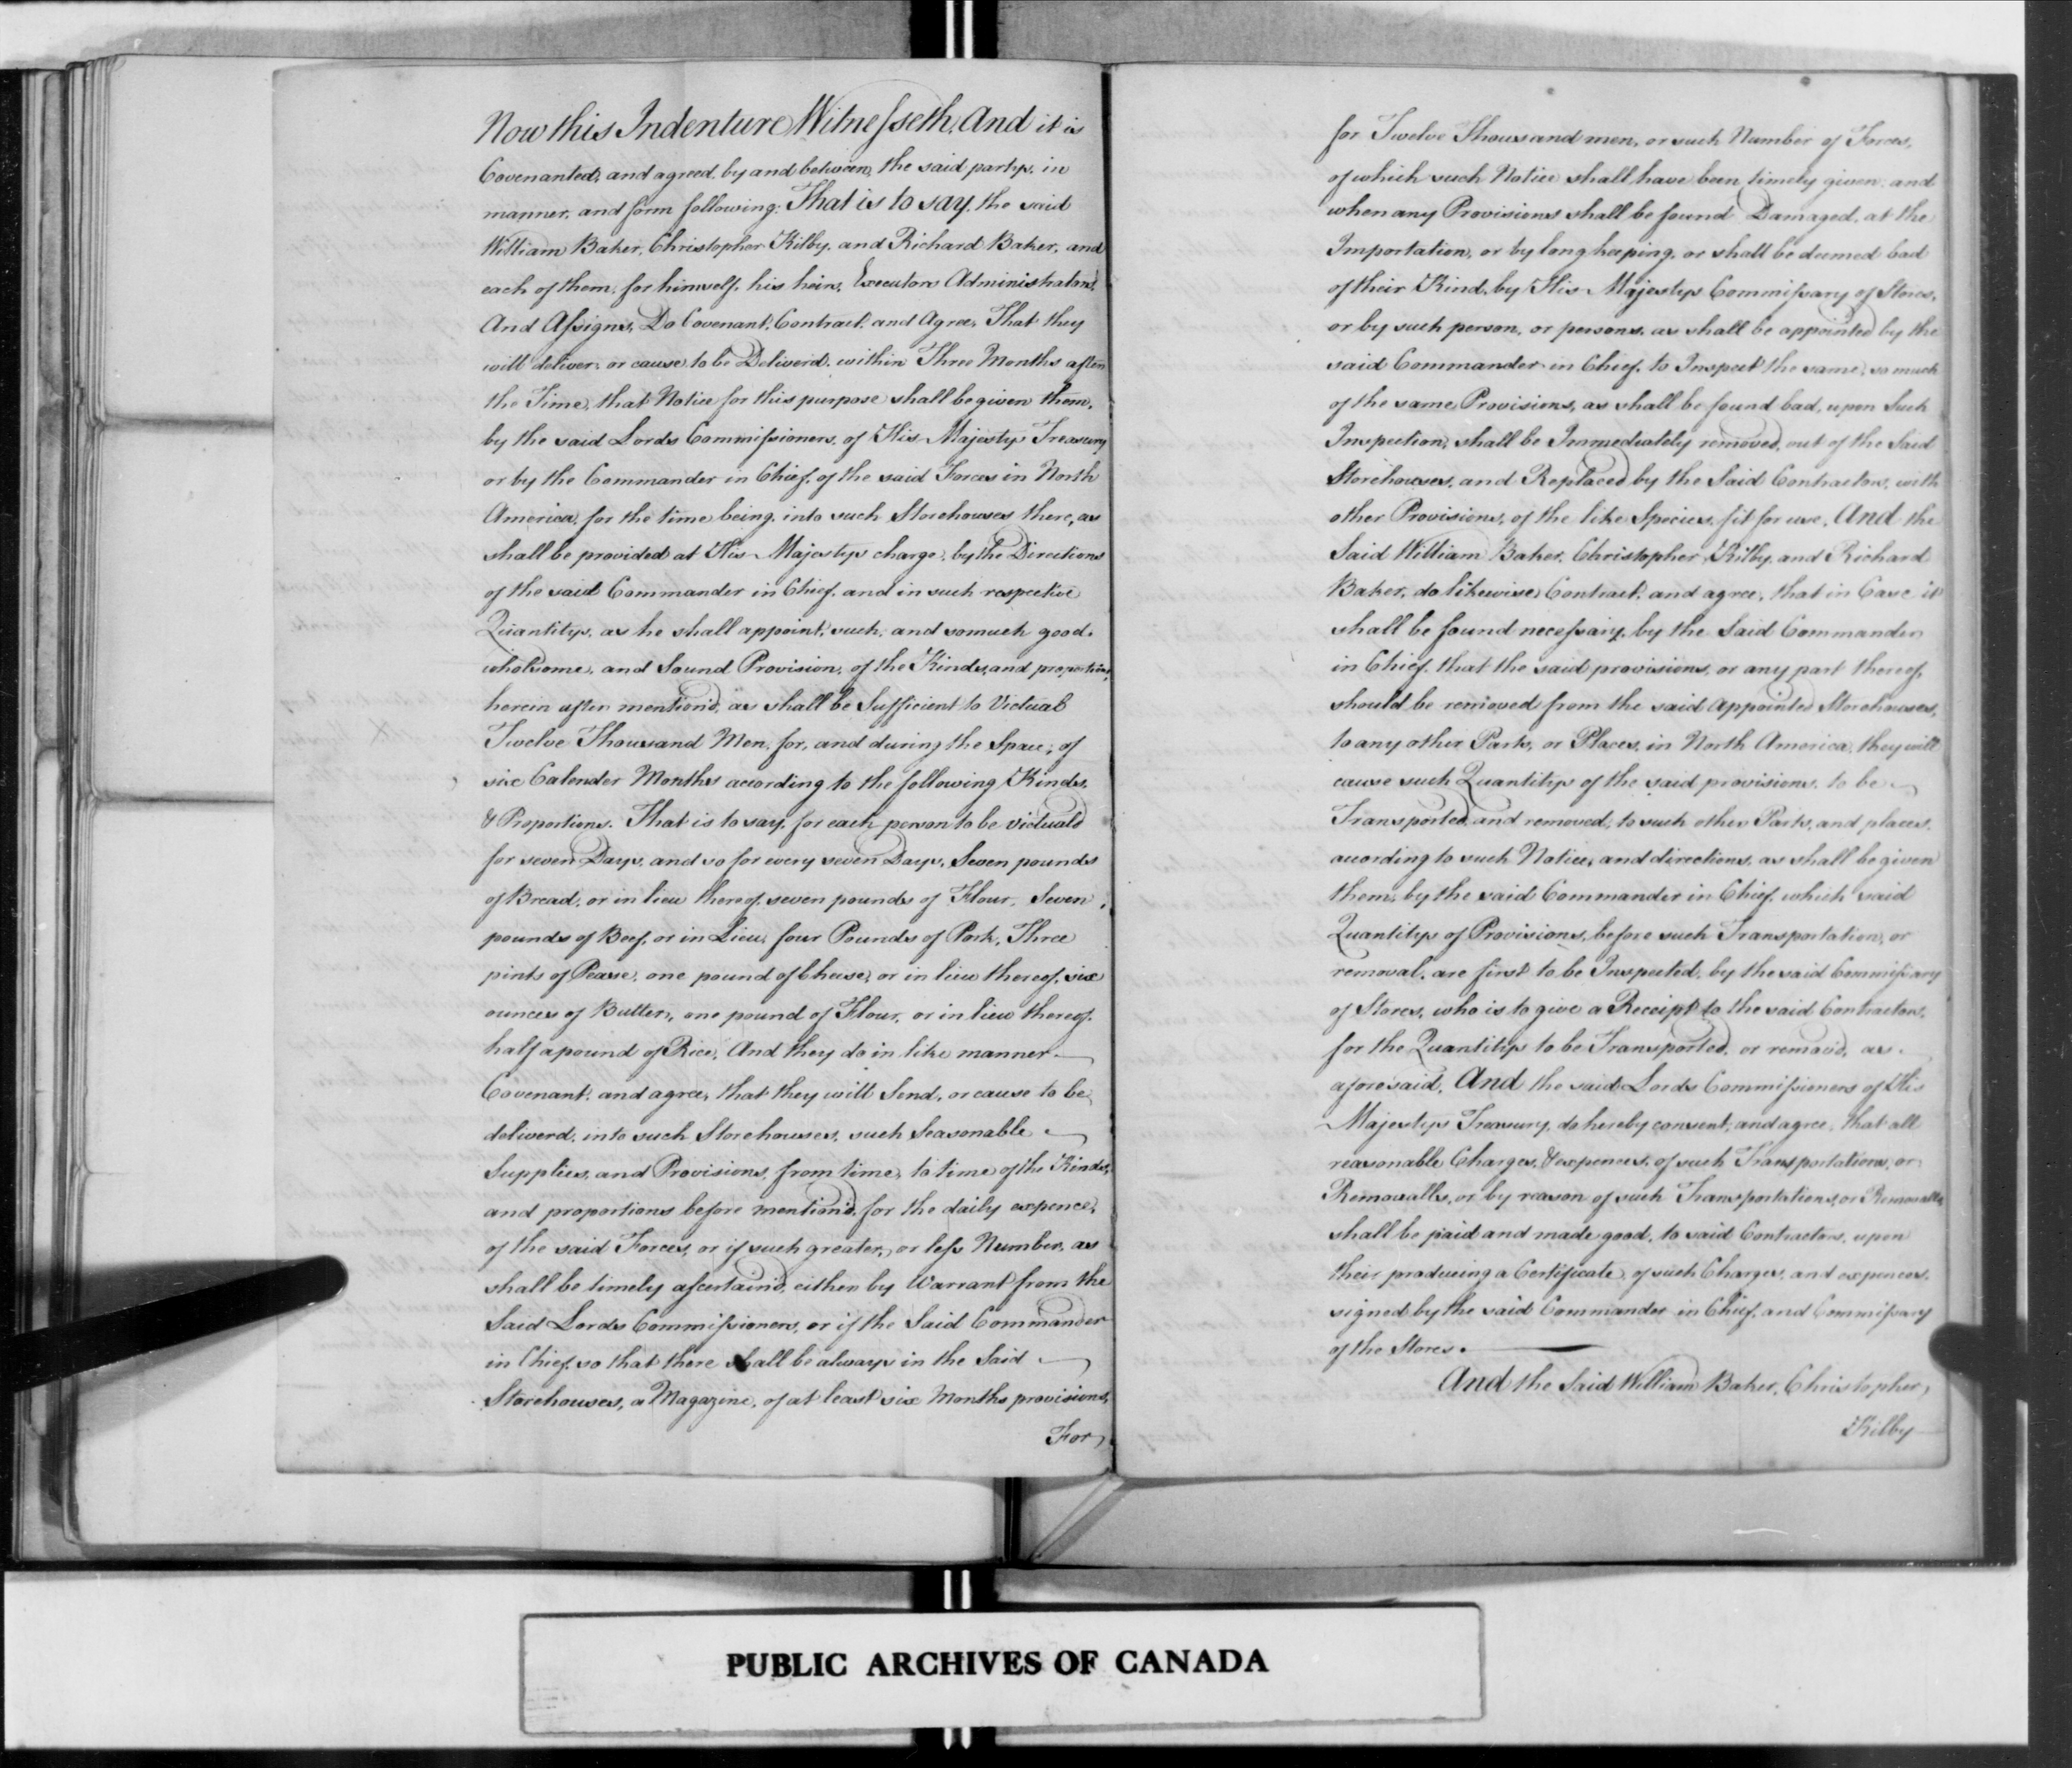 Now this Indenture Witnesseth, And it is
Covenanted, and agreed, by and between, the said partys, in
manner, and form following: That is to say, the said
William Baker, Christopher Kilby, and Richard Baker, and
each of them, for himself, his heirs, Executors Administrators,
And Assigns, Do Covenant, Contract, and Agree, That they
will deliver, or cause to be Deliverd, within Three Months after
the Time, that Notice for this purpose shall be given them,
by the said Lords Commissioners, of His Majestys Treasury
or by the Commander in Chief, of the said Forces in North
America, for the time being, into such Storehouses there, as
shall be provided at His Majestys charge, by the Directions
of the said Commander in Chief, and in such respective
Quantitys, as he shall appoint, such, and somuch good,
wholsome, and Sound Provision, of the Kinds, and proportions,
herein after mention'd, as shall be Sufficient to Victual
Twelve Thousand Men, for, and during the Space, of
six Calender Months according to the following Kinds,
& Proportions. That is to say, for each person to be victuald
for seven Days, and so for every seven Days, Seven pounds
of Bread, or in lieu thereof, seven pounds of Flour, Seven
pounds of Beef, or in Lieu, four Pounds of Pork, Three
pints of Pease, one pound of Cheese, or in lieu thereof, six
ounces of Butter, one pound of Flour, or in lieu thereof,
half apound of Rice, And they do in like manner
Covenant, and agree, that they will Send, or cause to be
deliverd, into such Storehouses, such Seasonable
Supplies, and Provisions, from time, to time of the Kinds,
and proportions before mention'd, for the daily expence,
of the said Forces, or if such greater, or less Number, as
shall be timely ascertain'd, either by Warrant from the
Said Lords Commissioners, or if the Said Commander
in Chief, so that there shall be always in the Said
Storehouses, a Magazine, of at least six Months provisions,
For
for Twelve Thousand men, or such Number of Forces,
of which such Notice shall have been timely given, and
when any Provisions shall be found Damaged, at the
Importation, or by long keeping, or shall be deemed bad
of their Kind, by His Majestys Commissary of Stores,
or by such person, or persons, as shall be appointed by the
said Commander in Chief, to Inspect the same, so much
of the same Provisions, as shall be found bad, upon Such
Inspection, shall be Immediately removed, out of the Said
Storehouses, and Replaced by the Said Contractors, with
other Provisions, of the like Species, fit for use, And the
Said William Baker, Christopher Kilby, and Richard
Baker, do likewise, Contract, and agree, that in Case it
shall be found necessary, by the Said Commander
in Chief, that the said provisions, or any part thereof,
should be removed from the said appointed Storehouses,
to any other Parts, or Places, in North America, they will
cause such Quantitys of the said provisions, to be
Transported and removed, to such other Parts, and places,
acording to such Notice, and directions, as shall be given
them, by the said Commander in Chief, which said
Quantitys of Provisions, before such Transportation, or
removal, are first to be Inspected, by the said Commissary
of Stores, who is to give a Receipt to the said Contractors,
for the Quantitys to be Transported, or remov'd, as
aforesaid, And the said Lords Commissioners of His
Majestys Treasury, do hereby consent, and agree, that all
reasonable Charges, & expences, of such Transportations, or
Removalls, or by reason of such Transportations, or Removalls,
shall be paid and made good, to said Contractors, upon
their produceing a Certificate, of such Charges, and expences,
signed by the said Commander in Chief, and Commissary
of the Stores.
And the Said William Baker, Christopher,
Kilby
PUBLIC ARCHIVES OF CANADA